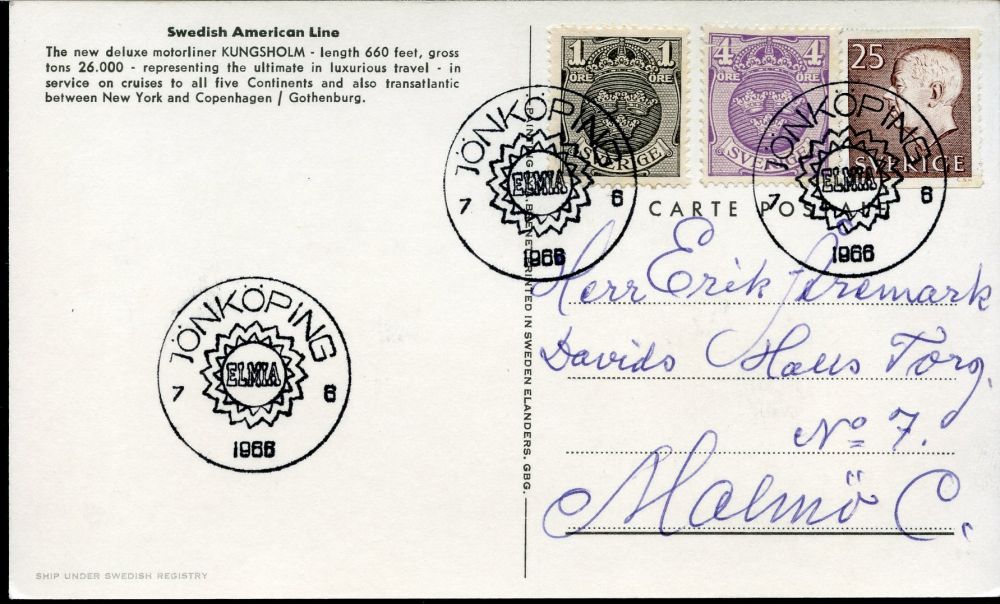 Swedish American Line
The new deluxe motorliner KUNGSHOLM - length 660 feet, gross
tons 26.000 - representing the ultimate in luxurious travel - in
service on cruises to all five Continents and also transatlantic
between New York and Copenhagen / Gothenburg.
1 1
ÖRE ÖRE
SVERIGE
4 4
ÖRE ÖRE
SVERIGE
25
SVERIGE
JÖNKÖPING
ELMIA
7 6
1966
JÖNKÖPING
ELMIA
7 6
1966
CARTE POSTALE
Herr Erik Jeremark
Davids Halls Torg.
No 7.
Malmö C.
PRINTED IN SWEDEN ELANDERS. GBG.
JÖNKÖPING
ELMIA
7 6
1966
SHIP UNDER SWEDISH REGISTRY